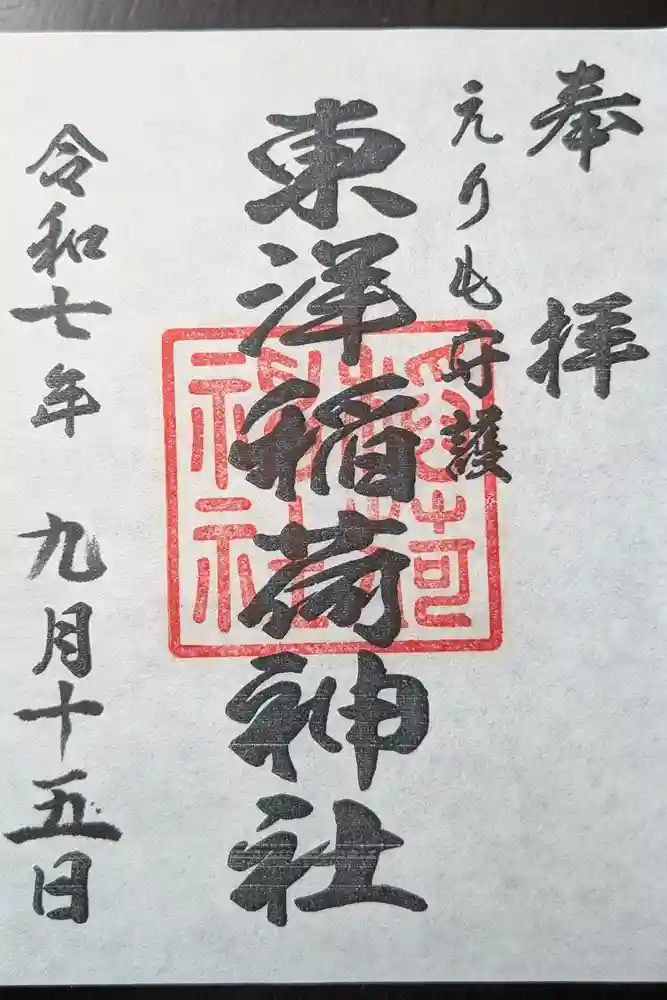 奉拝
えりも守護
東洋稲荷神社
令和七年九月十五日